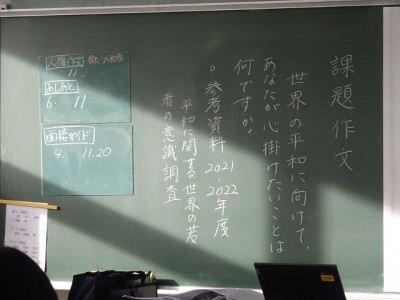 課題作文
世界の平和に向けて、
あなたが心掛けたいことは
何ですか。
○参考資料 2021・2022年度
平和に関する世界の若
者の意識調査
11
あしあと
6. 11
面接ガイド
4. 11.20